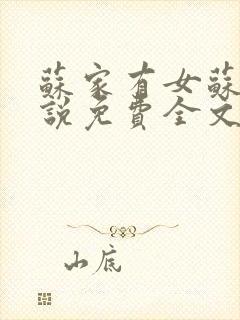 蘇家有女蘇
說免費全文
山底